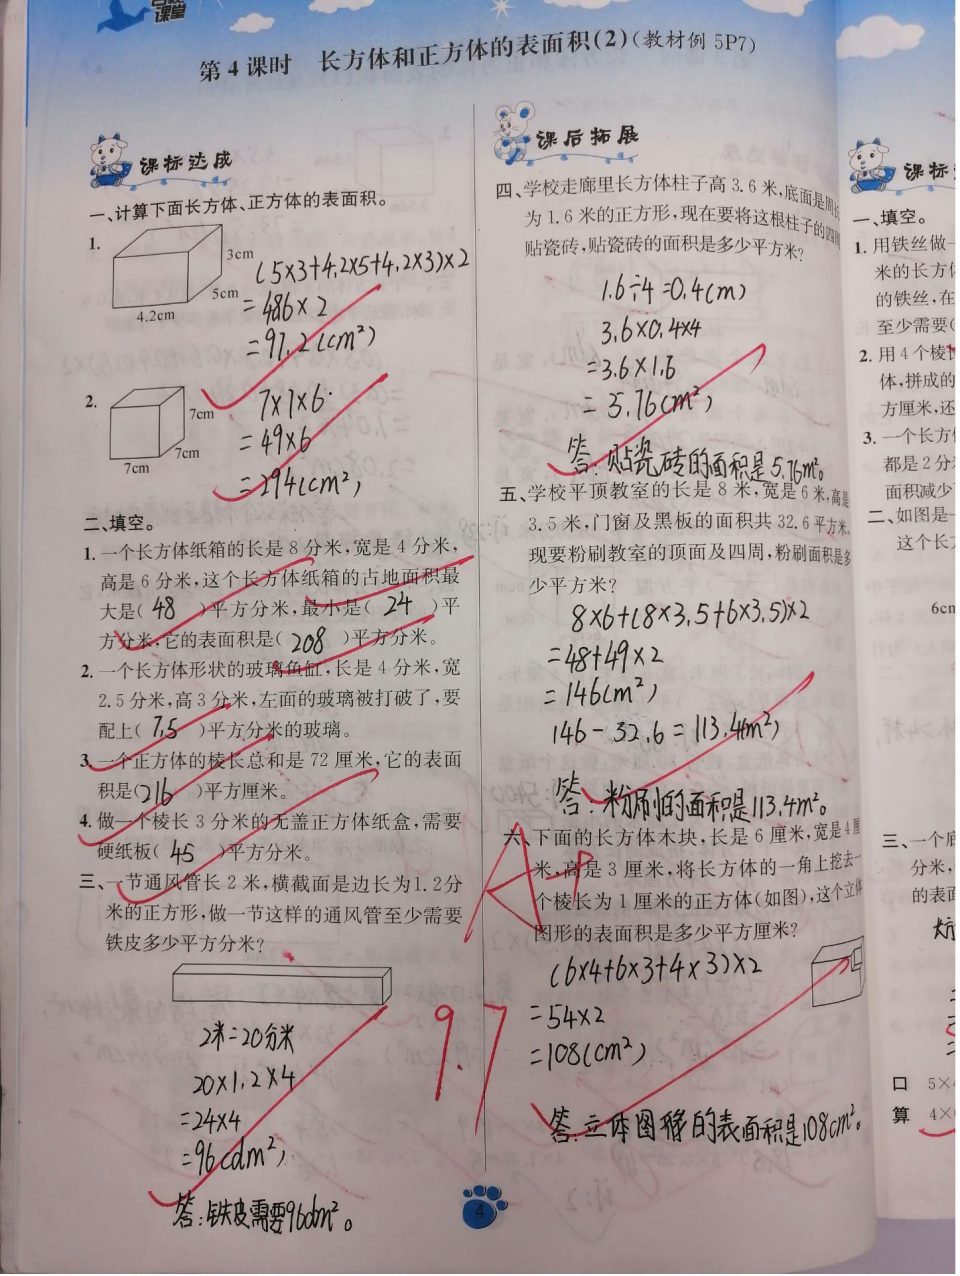 课堂
第4课时 长方体和正方体的表面积(2)(教材例5P7)
课标达成
一、计算下面长方体、正方体的表面积。
1.
3cm
5cm
4.2cm
(5×3+4.2×5+4.2×3)×2
=486×2
=97.2(cm²)
2.
7cm
7cm
7cm
7×7×6
=49×6
=294(cm²)
二、填空。
1.一个长方体纸箱的长是8分米,宽是4分米,
高是6分米,这个长方体纸箱的占地面积最
大是( 48 )平方分米,最小是( 24 )平
方分米,它的表面积是( 208 )平方分米。
2.一个长方体形状的玻璃鱼缸,长是4分米,宽
2.5分米,高3分米,左面的玻璃被打破了,要
配上( 7.5 )平方分米的玻璃。
3.一个正方体的棱长总和是72厘米,它的表面
积是(216 )平方厘米。
4.做一个棱长3分米的无盖正方体纸盒,需要
硬纸板( 45 )平方分米。
三、一节通风管长2米,横截面是边长为1.2分
米的正方形,做一节这样的通风管至少需要
铁皮多少平方分米?
2米=20分米
20×1.2×4
=24×4
=96(dm²)
答:铁皮需要96dm²。
课后拓展
四、学校走廊里长方体柱子高3.6米,底面是周长
为1.6米的正方形,现在要将这根柱子的四周
贴瓷砖,贴瓷砖的面积是多少平方米?
1.6÷4=0.4(m)
3.6×0.4×4
=3.6×1.6
=5.76(m²)
答:贴瓷砖的面积是5.76m²。
五、学校平顶教室的长是8米,宽是6米,高是
3.5米,门窗及黑板的面积共32.6平方米,
现要粉刷教室的顶面及四周,粉刷面积是多
少平方米?
8×6+(8×3.5+6×3.5)×2
=48+49×2
=146(m²)
146-32.6=113.4(m²)
答:粉刷的面积是113.4m²。
六、下面的长方体木块,长是6厘米,宽是4厘
米,高是3厘米,将长方体的一角上挖去一
个棱长为1厘米的正方体(如图),这个立体
图形的表面积是多少平方厘米?
(6×4+6×3+4×3)×2
=54×2
=108(cm²)
答:立体图形的表面积是108cm²。
A+
9.7
4
课标
一、填空。
1.用铁丝做一
米的长方体
的铁丝,在
至少需要(
2.用4个棱长
体,拼成的
方厘米,还
3.一个长方体
都是2分
面积减少
二、如图是一
这个长方
6cm
三、一个底
分米,
的表面
口 5×
算 4×